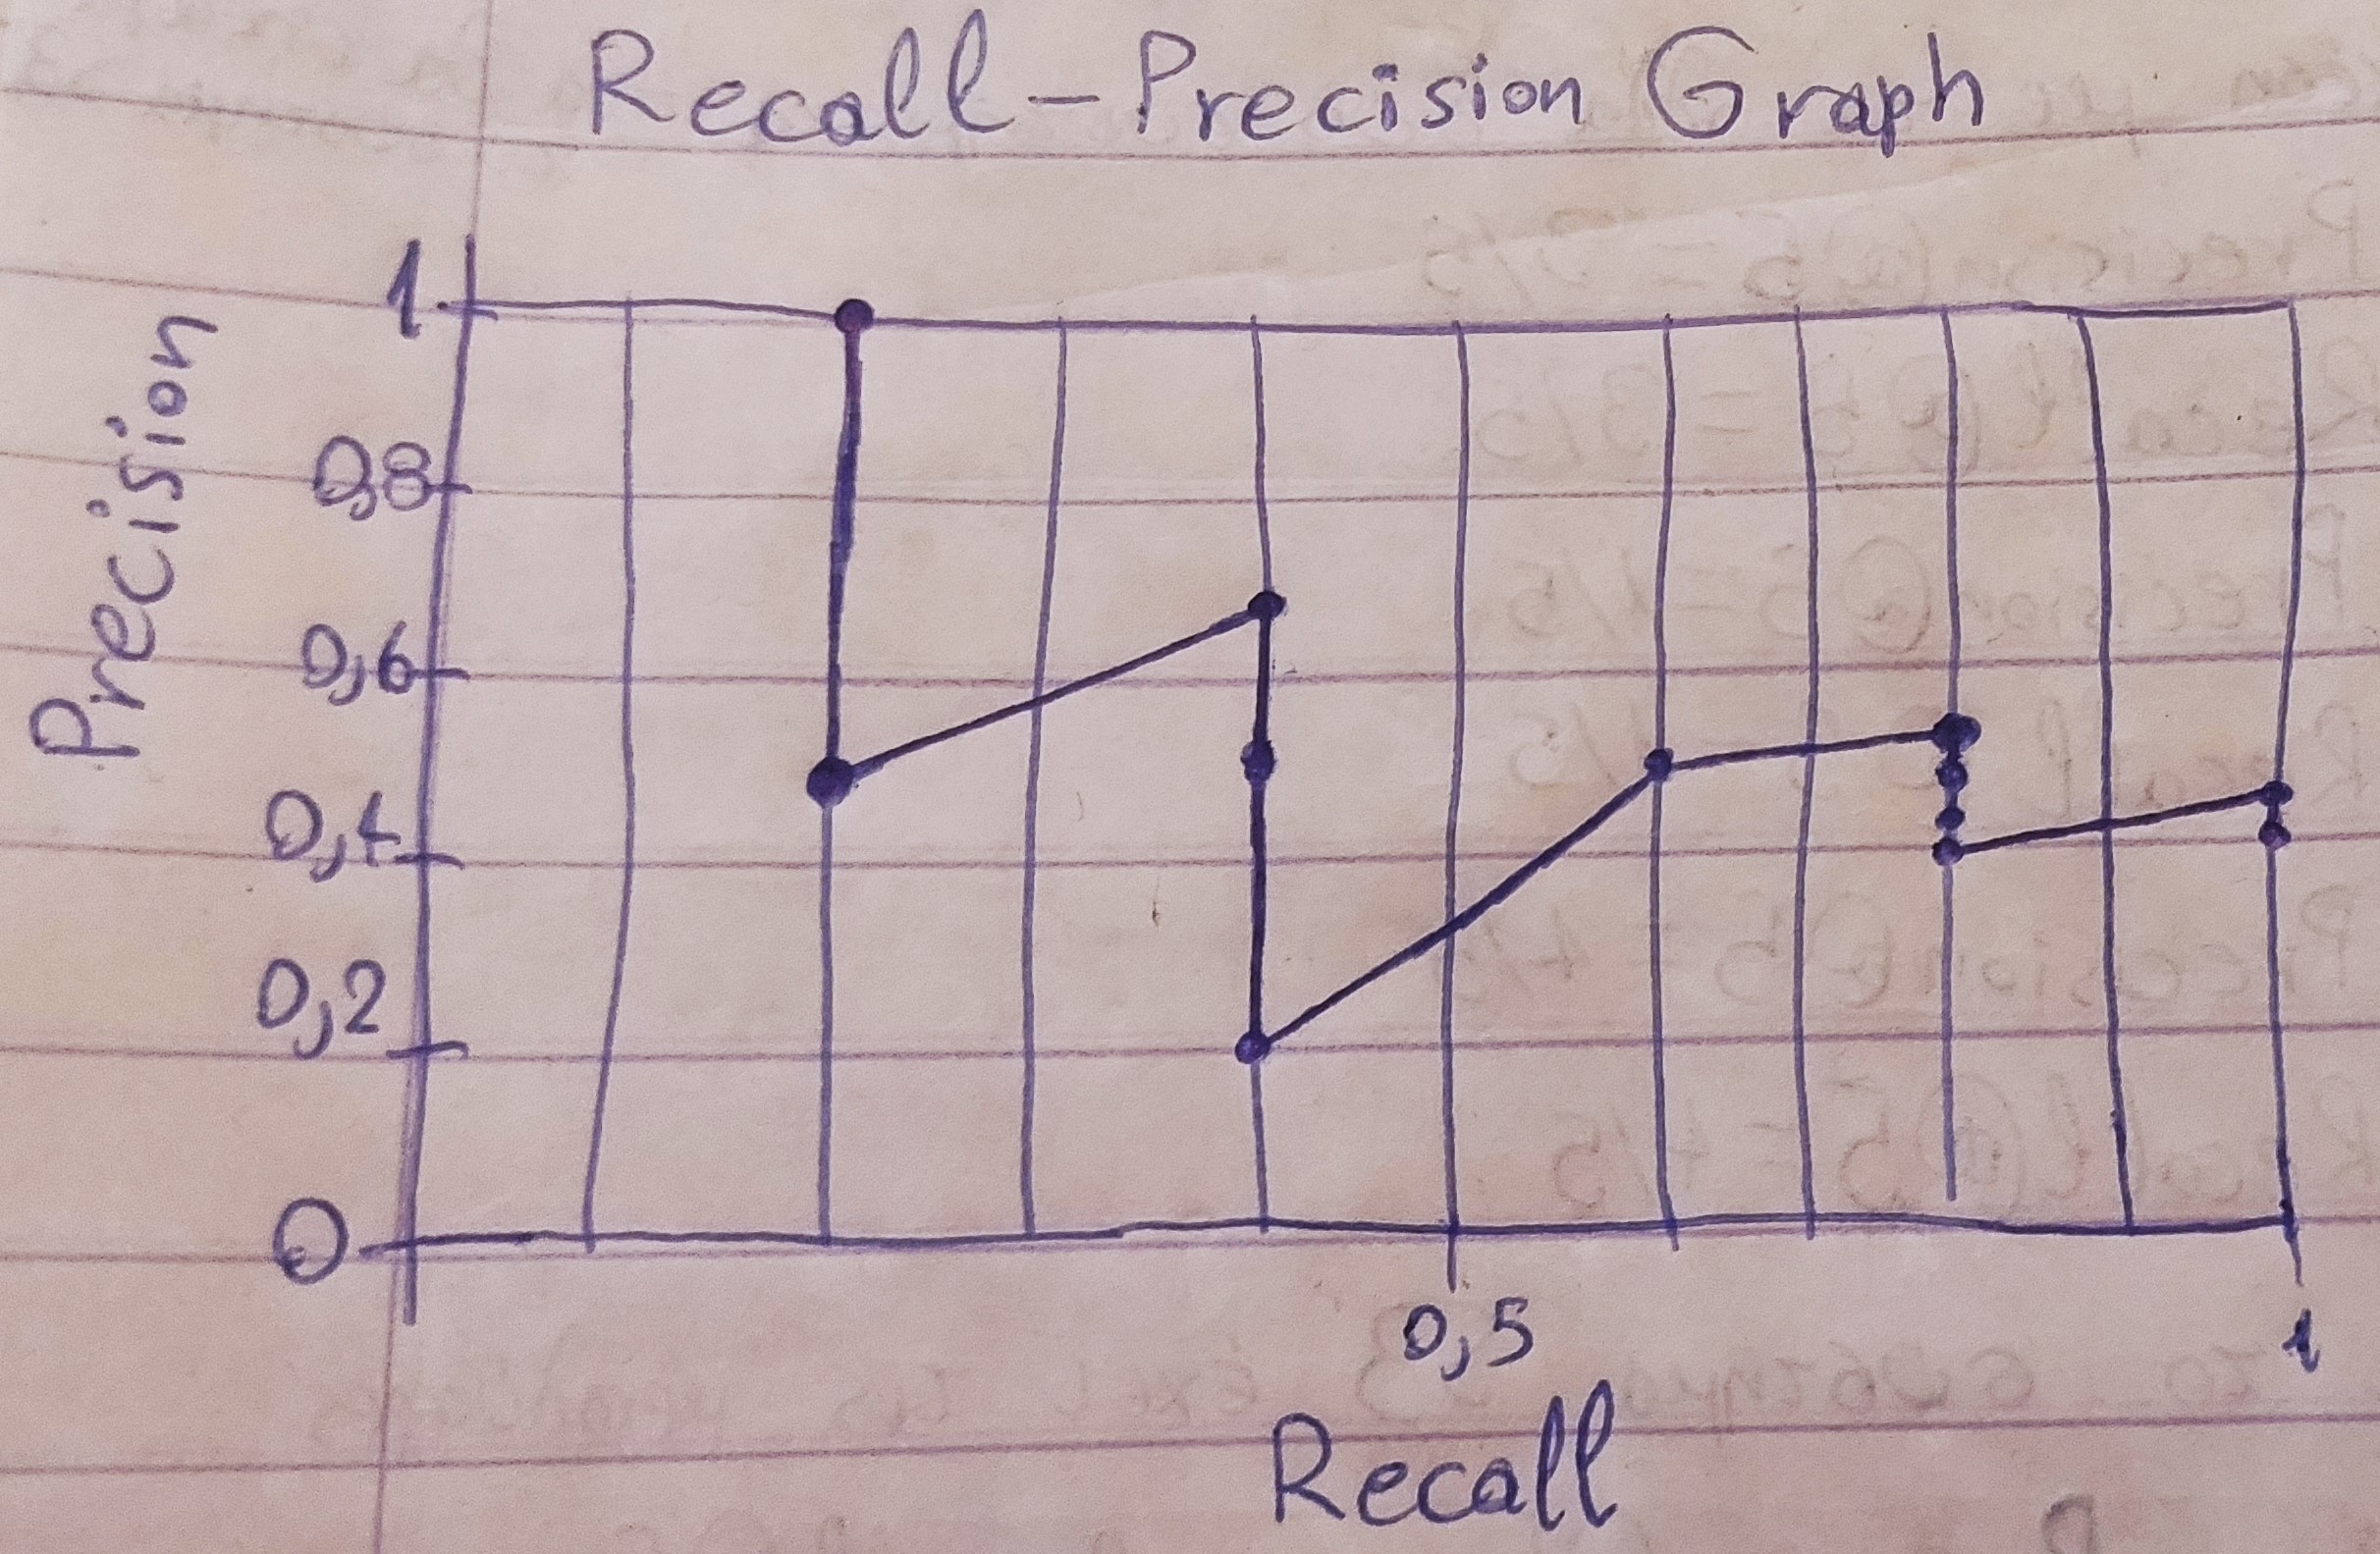 Recall-Precision Graph
Precision
1
0,8
0,6
0,4
0,2
0
0,5
1
Recall